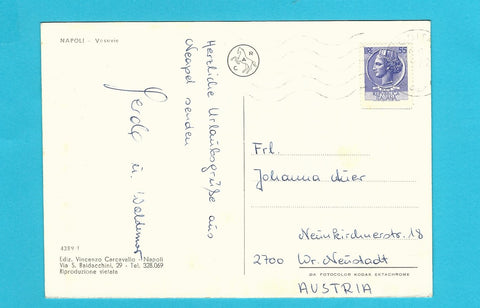 NAPOLI - Vesuvio
Herzliche Urlaubsgrüße aus
Neapel senden
u. Waldemar
4359 T
Ediz. Vincenzo Carcavallo - Napoli
Via S. Baldacchini, 29 - Tel. 328.069
Riproduzione vietata
55
Frl.
Johanna Auer
Neunkirchnerstr. 18
2700 Wr. Neustadt
DA FOTOCOLOR KODAK EKTACHROME
AUSTRIA